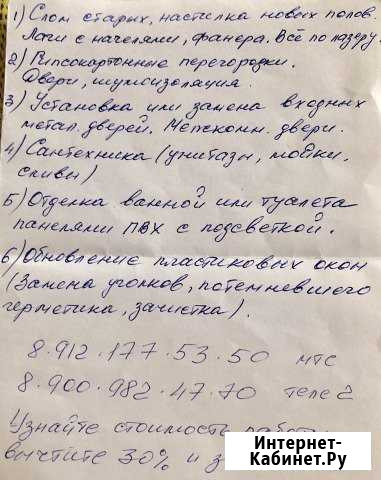 1) Слом старых, настилка новых полов.
Лаги с качелями, фанера. Всё по лазеру.
2) Гипсокартонные перегородки.
Двери, шумоизоляция.
3) Установка или замена входных
метал. дверей. Межкомн. двери.
4) Сантехника (унитазы, мойки,
сливы)
5) Отделка ванной или туалета
панелями ПВХ с подсветкой.
6) Обновление пластиковых окон
(Замена уголков, потемневшего
герметика, зачистка).
8·912·177·53·50 мтс
8·900·982·47·70 теле 2
Узнайте стоимость
вычтите 30% и
Интернет-
Кабинет.Ру